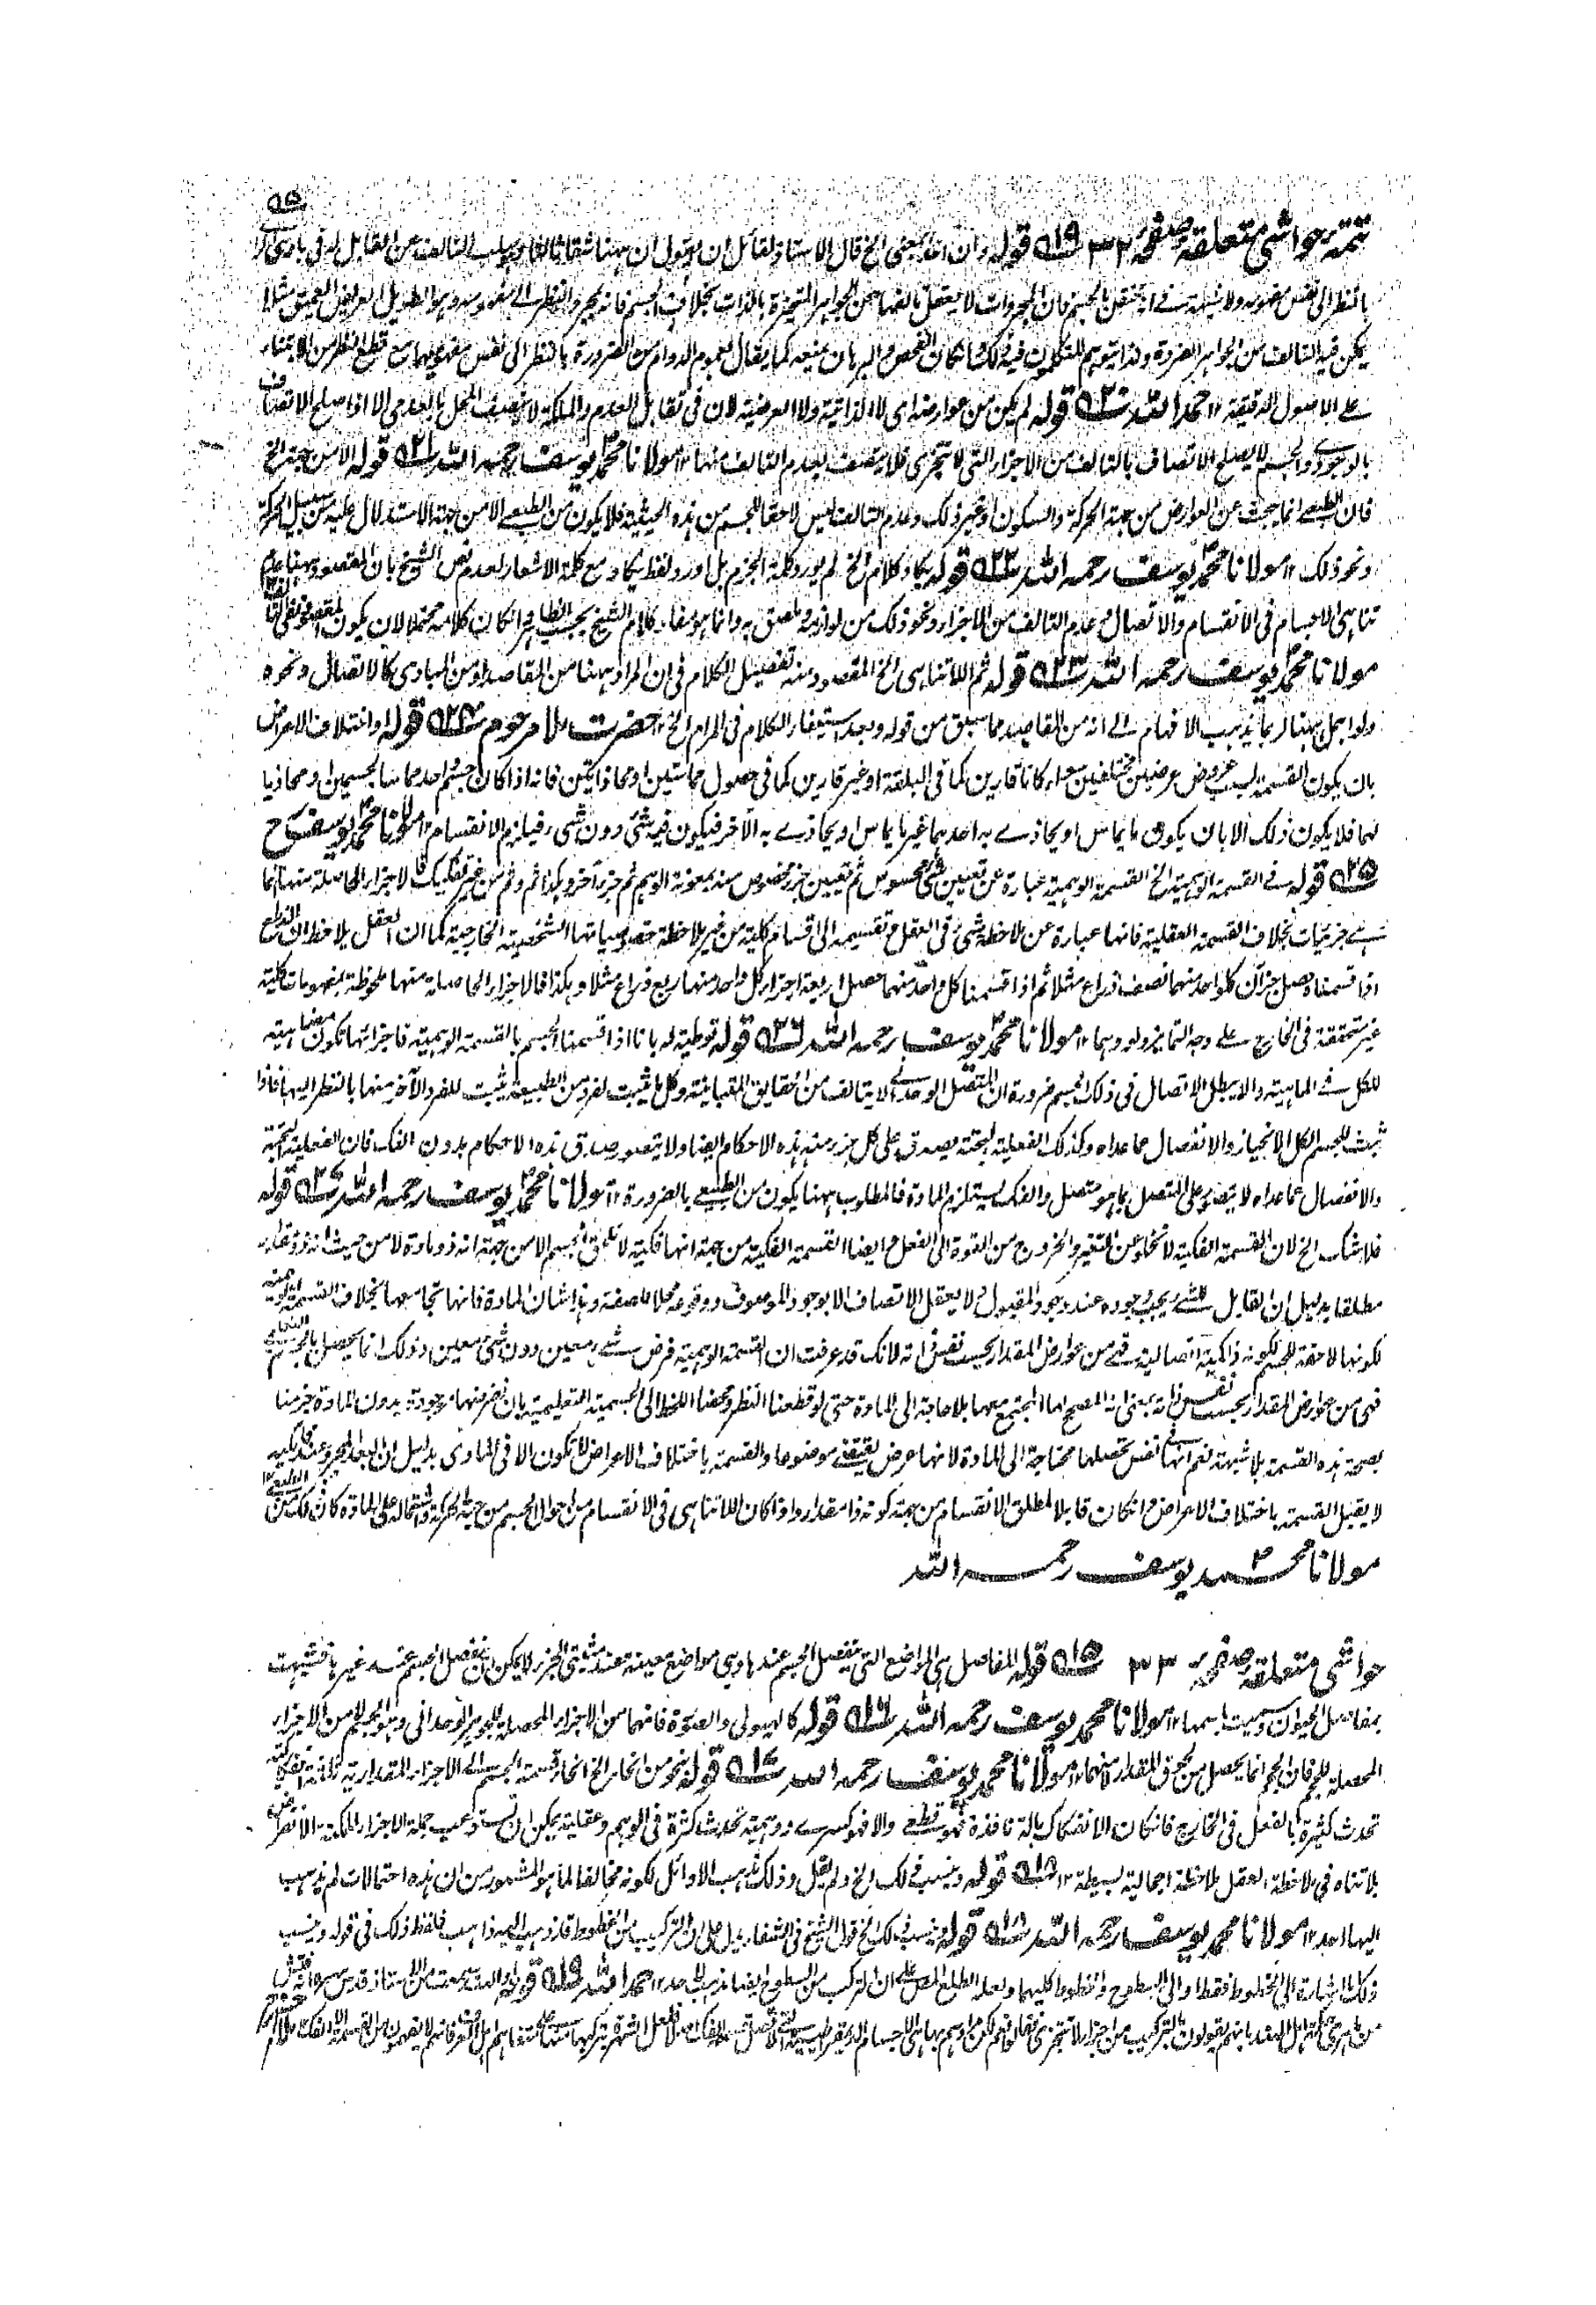 تتمة حواشى متعلقه صفحه ٣٢ قوله وان الخ بمعنى الخ قال الاستاذ لقائل ان يقول ان ههنا شقا ثالثا وهو سلب التالف من القابل له فى بادى
بالنظر الى نفس مفهومه ولا شبهة فى انه يختص بالجسم فان المجردات لا يعقل تالفها من الجواهر المتحيزة بالذات بخلاف الجسم فانه بمجرد النظر الى مفهومه وهو الطويل العريض العميق مثلا
يمكن فيه التالف من الجواهر الفردة ولذا يتوهم المتكلمون فيه ذلك وان كان الفحص والبرهان يمنعه كما يقال لعموم الدوام من الضرورة بالنظر الى نفس مفهوميهما مع قطع النظر من الابتناء
على الاصول الدقيقة ١٢ حمد الله قوله لم يكن من عوارضه اى لا الذاتية ولا العرضية لان فى تقابل العدم والملكة لا يتصف المحل بالعدمى الا اذا صلح الاتصاف
بالوجودى والجسم لا يصلح الاتصاف بالتالف من الاجزاء التى لا تتجزى فلا يتصف بعدم التالف منها ١٢ مولانا محمد يوسف رحمه الله قوله الا من جهة الخ
فان الطبعى انما يبحث عن العوارض من جهة الحركة والسكون او غير ذلك وعدم التالف ليس لاحقا للجسم من هذه الحيثية فلا يكون من الطبعى الا من جهة الاستدلال عليه من سبيل الحركة
ونحو ذلك ١٢ مولانا محمد يوسف رحمه الله قوله يكاد كلام الخ لم يورد كلمة الجزم بل اورد لفظ يكاد مع كلمة الاشعار لعدم نص الشيخ بان المقصود ههنا عدم
تناهى الاجسام فى الانقسام والاتصال وعدم التالف من الاجزاء ونحو ذلك من لوازمه وملصق به وانما هو مفاد كلام الشيخ بحسب الظاهر وان كان كلامه محتملا لان يكون المقصود
مولانا محمد يوسف رحمه الله قوله ثم اللاتناهى الخ المقصود منه تفصيل الكلام فى ان المراد ههنا من المقاصد او من المبادى كالاتصال ونحوه
ولو اجمل ههنا لربما يذهب الافهام الى انه من المقاصد مما سبق من قوله وبعد استيفاء الكلام فى المرام الخ ١٢ حضرت ملا مرحوم قوله او اختلاف الاعراض
بان يكون القسمة بسبب عروض عرضين مختلفين سواء كانا قارين كما فى البلقة او غير قارين كما فى حصول مماستين او محاذاتين فانه اذا كان جسم واحد مماسا لجسمين او محاذيا
لهما فلا يكون ذلك الا بان يكون ما يماس او يحاذى به احدهما غير ما يماس او يحاذى به الآخر فيكون فيه شئ دون شئ فيلزم الانقسام ١٢ مولانا محمد يوسف رح
قوله فى القسمة الوهمية الخ القسمة الوهمية عبارة عن تعيين شئ محسوس ثم تعيين جزء مخصوص منه بمعونة الوهم ثم جزء آخر وهكذا ثم وثم من غير تفكيك فالاجزاء الحاصلة منها انما
هى جزئيات بخلاف القسمة العقلية فانها عبارة عن ملاحظة شئ فى العقل وتقسيمه الى اقسام كلية من غير ملاحظة خصوصياتها الشخصية الخارجية كما ان العقل يلاحظ ان الذراع
اذا قسمناه حصل جزآن كل واحد منهما نصف ذراع مثلا ثم اذا قسمنا كل واحد منهما حصل اربعة اجزاء كل واحد منها ربع ذراع مثلا وهكذا فالاجزاء الحاصلة منها ملحوظة بمفهومات كلية
غير متحققة فى الخارج على وجه التمايز ولو وهما ١٢ مولانا محمد يوسف رحمه الله قوله توطية له بانا اذا قسمنا الجسم بالقسمة الوهمية فاجزائها تكون مضاهية
للكل فى الماهية والا يبطل الاتصال فى ذلك الجسم ضرورة ان المتصل الوحدانى لا يتالف من الحقايق المتباينة وكل ما يثبت لفرد من الطبيعة يثبت للفرد الآخر منها بالنظر اليها فاذا
ثبت للجسم الكل الانحياز والانفصال عما عداه وكذلك الفعلية البحتة يصدق على كل جزء منه هذه الاحكام ايضا ولا يتصور صدق هذه الاحكام بدون الفك فان الفعلية البحتة
والانفصال عما عداه لا يتصور على المتصل بما هو متصل والفك يستلزم المادة فالمطلوب ههنا يكون من الطبيعى بالضرورة ١٢ مولانا محمد يوسف رحمه الله قوله
فلا شك الخ لان القسمة الفكية لا تخلو عن التغير والخروج من القوة الى الفعل وايضا القسمة الفكية من جهة انها فكية لا تلحق الجسم الا من جهة انه ذو مادة لا من حيث انه ذو مقدار
مطلقا بدليل ان القابل للشئ يجب وجوده عند وجود المقبول اذ لا يعقل الاتصاف الا بوجود الموصوف ووقوعه محلا للصفة وهذا شان المادة فانها تجامعها بخلاف القسمة الوهمية
لكونها لاحقة للجسم لكونه ذا كمية اتصالية فهى من عوارض المقدار بحسب نفس ذاته لانك قد عرفت ان القسمة الوهمية فرض شئ معين دون شئ معين وذلك انما يحصل بالجسم
فهى من عوارض المقدار بحسب نفس ذاته بمعنى انه المصحح لها المجتمع معها بلا حاجة الى المادة حتى لو قطعنا النظر ومحضنا اللحظ الى الجسمية التعليمية بان نفرضها موجودة بدون المادة جزمنا
بصحة هذه القسمة بلا شبهة نعم انها فى نفس تحصلها محتاجة الى المادة لانها عرض يقتضى موضوعا والقسمة باختلاف الاعراض لا يكون الا فى المادى بدليل ان البعد المجرد عند
لا يقبل القسمة باختلاف الاعراض وان كان قابلا لمطلق الانقسام من جهة كونه ذا مقدار واذا كان اللاتناهى فى الانقسام من احوال الجسم من جهة الحركة واشتماله على المادة كان ذلك من
مولانا محمد يوسف رحمه الله
حواشى متعلقه صفحه ٣٣ قوله المفاصل هى المواضع التى ينفصل الجسم عندها وهى مواضع معينة عند مثبتى الجزء لا يمكن ان ينفصل الجسم عند غيرها فشبهت
بمفاصل الحيوان وسميت باسمها ١٢ مولانا محمد يوسف رحمه الله قوله كالهيولى والصورة فانهما من الاجزاء المحصلة للجوهر الوحدانى وهو الجسم لا من الاجزاء
المحصلة للحجم فان الحجم انما يحصل من لحوق المقدار لا منهما ١٢ مولانا محمد يوسف رحمه الله قوله نحو من انحاء الخ انحاء قسمة الجسم الى الاجزاء المقدارية ثلثة انفكاكية
تحدث كثرة بالفعل فى الخارج فان كان الانفكاك بالة نافذة فهو قطعى والا فهو كسرى ووهمية تحدث كثرة فى الوهم وعقلية يمكن ان تستوعب جملة الاجزاء الممكنة الانفراض
بلا تناه فى ملاحظة العقل بملاحظة اجمالية بسيطة ١٢ قوله وينسب ذلك الخ ولم يقل وذلك مذهب الاوائل لكونه مخالفا لما هو المشهور من ان هذه احتمالات لم يذهب
اليها احد ١٢ مولانا محمد يوسف رحمه الله قوله وينسب ذلك الخ قول الشيخ فى الشفاء يدل على ان التركيب من الخطوط قد ذهب اليه ذاهب فلفظ ذلك فى قوله وينسب
ذلك اشارة الى الخطوط فقط او الى السطوح والخطوط كليهما ولعله اطلع المص على ان التركب من السطوح ايضا مذهب لاحد ١٢ حمد الله قوله